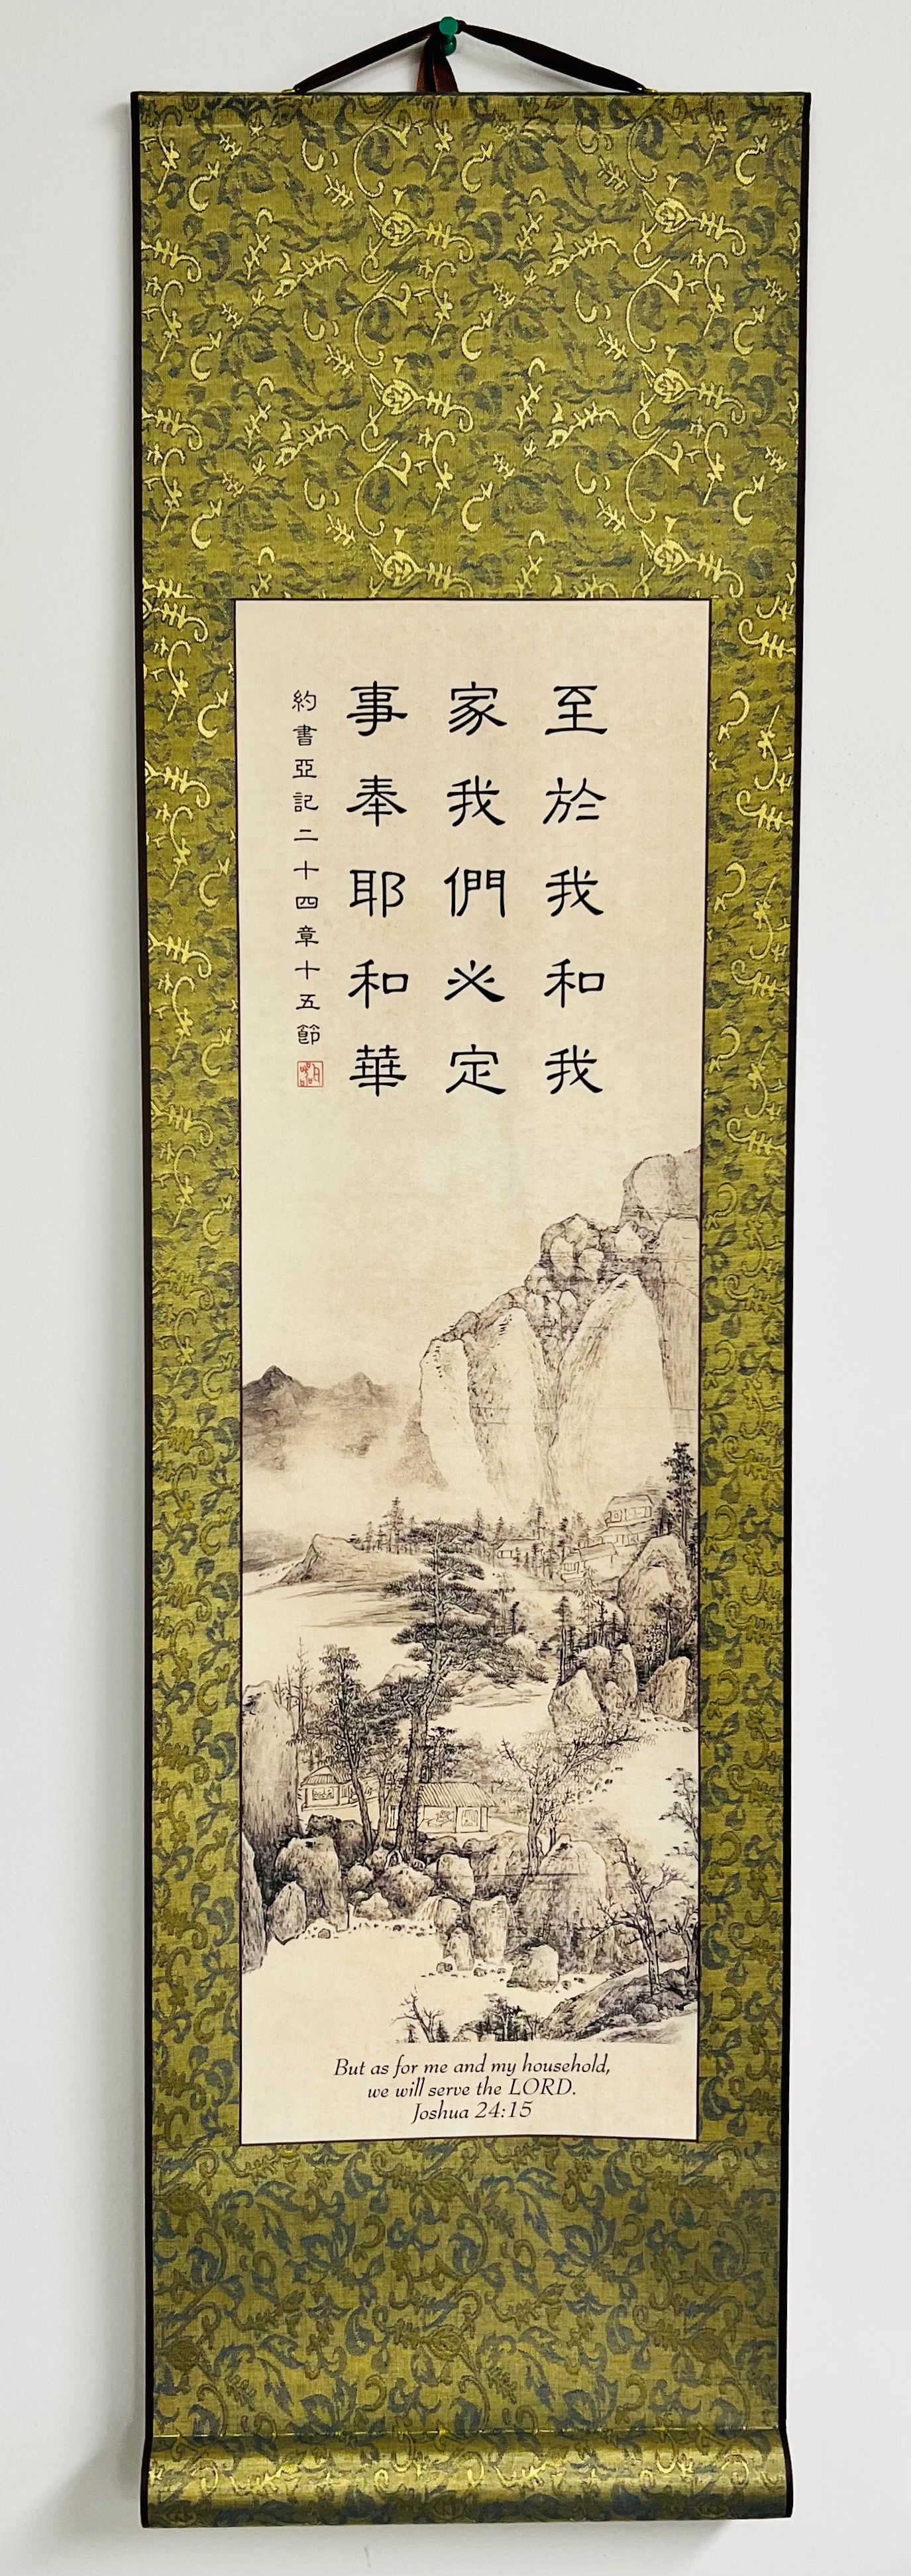 至於我和我
家我們必定
事奉耶和華
約書亞記二十四章十五節
But as for me and my household,
we will serve the LORD.
Joshua 24:15